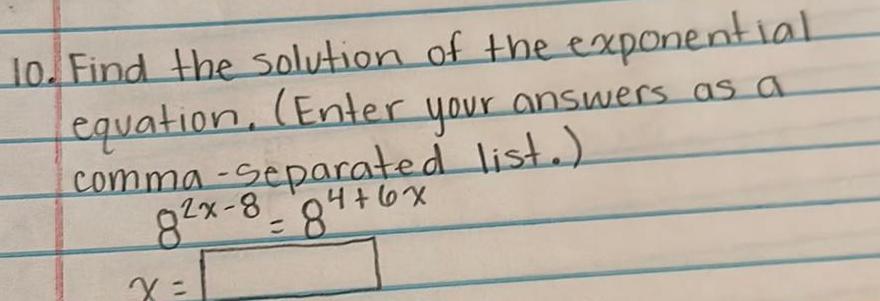 10. Find the solution of the exponential
equation. (Enter your answers as a
comma-separated list.)
8^{2x-8} = 8^{4+6x}
x =